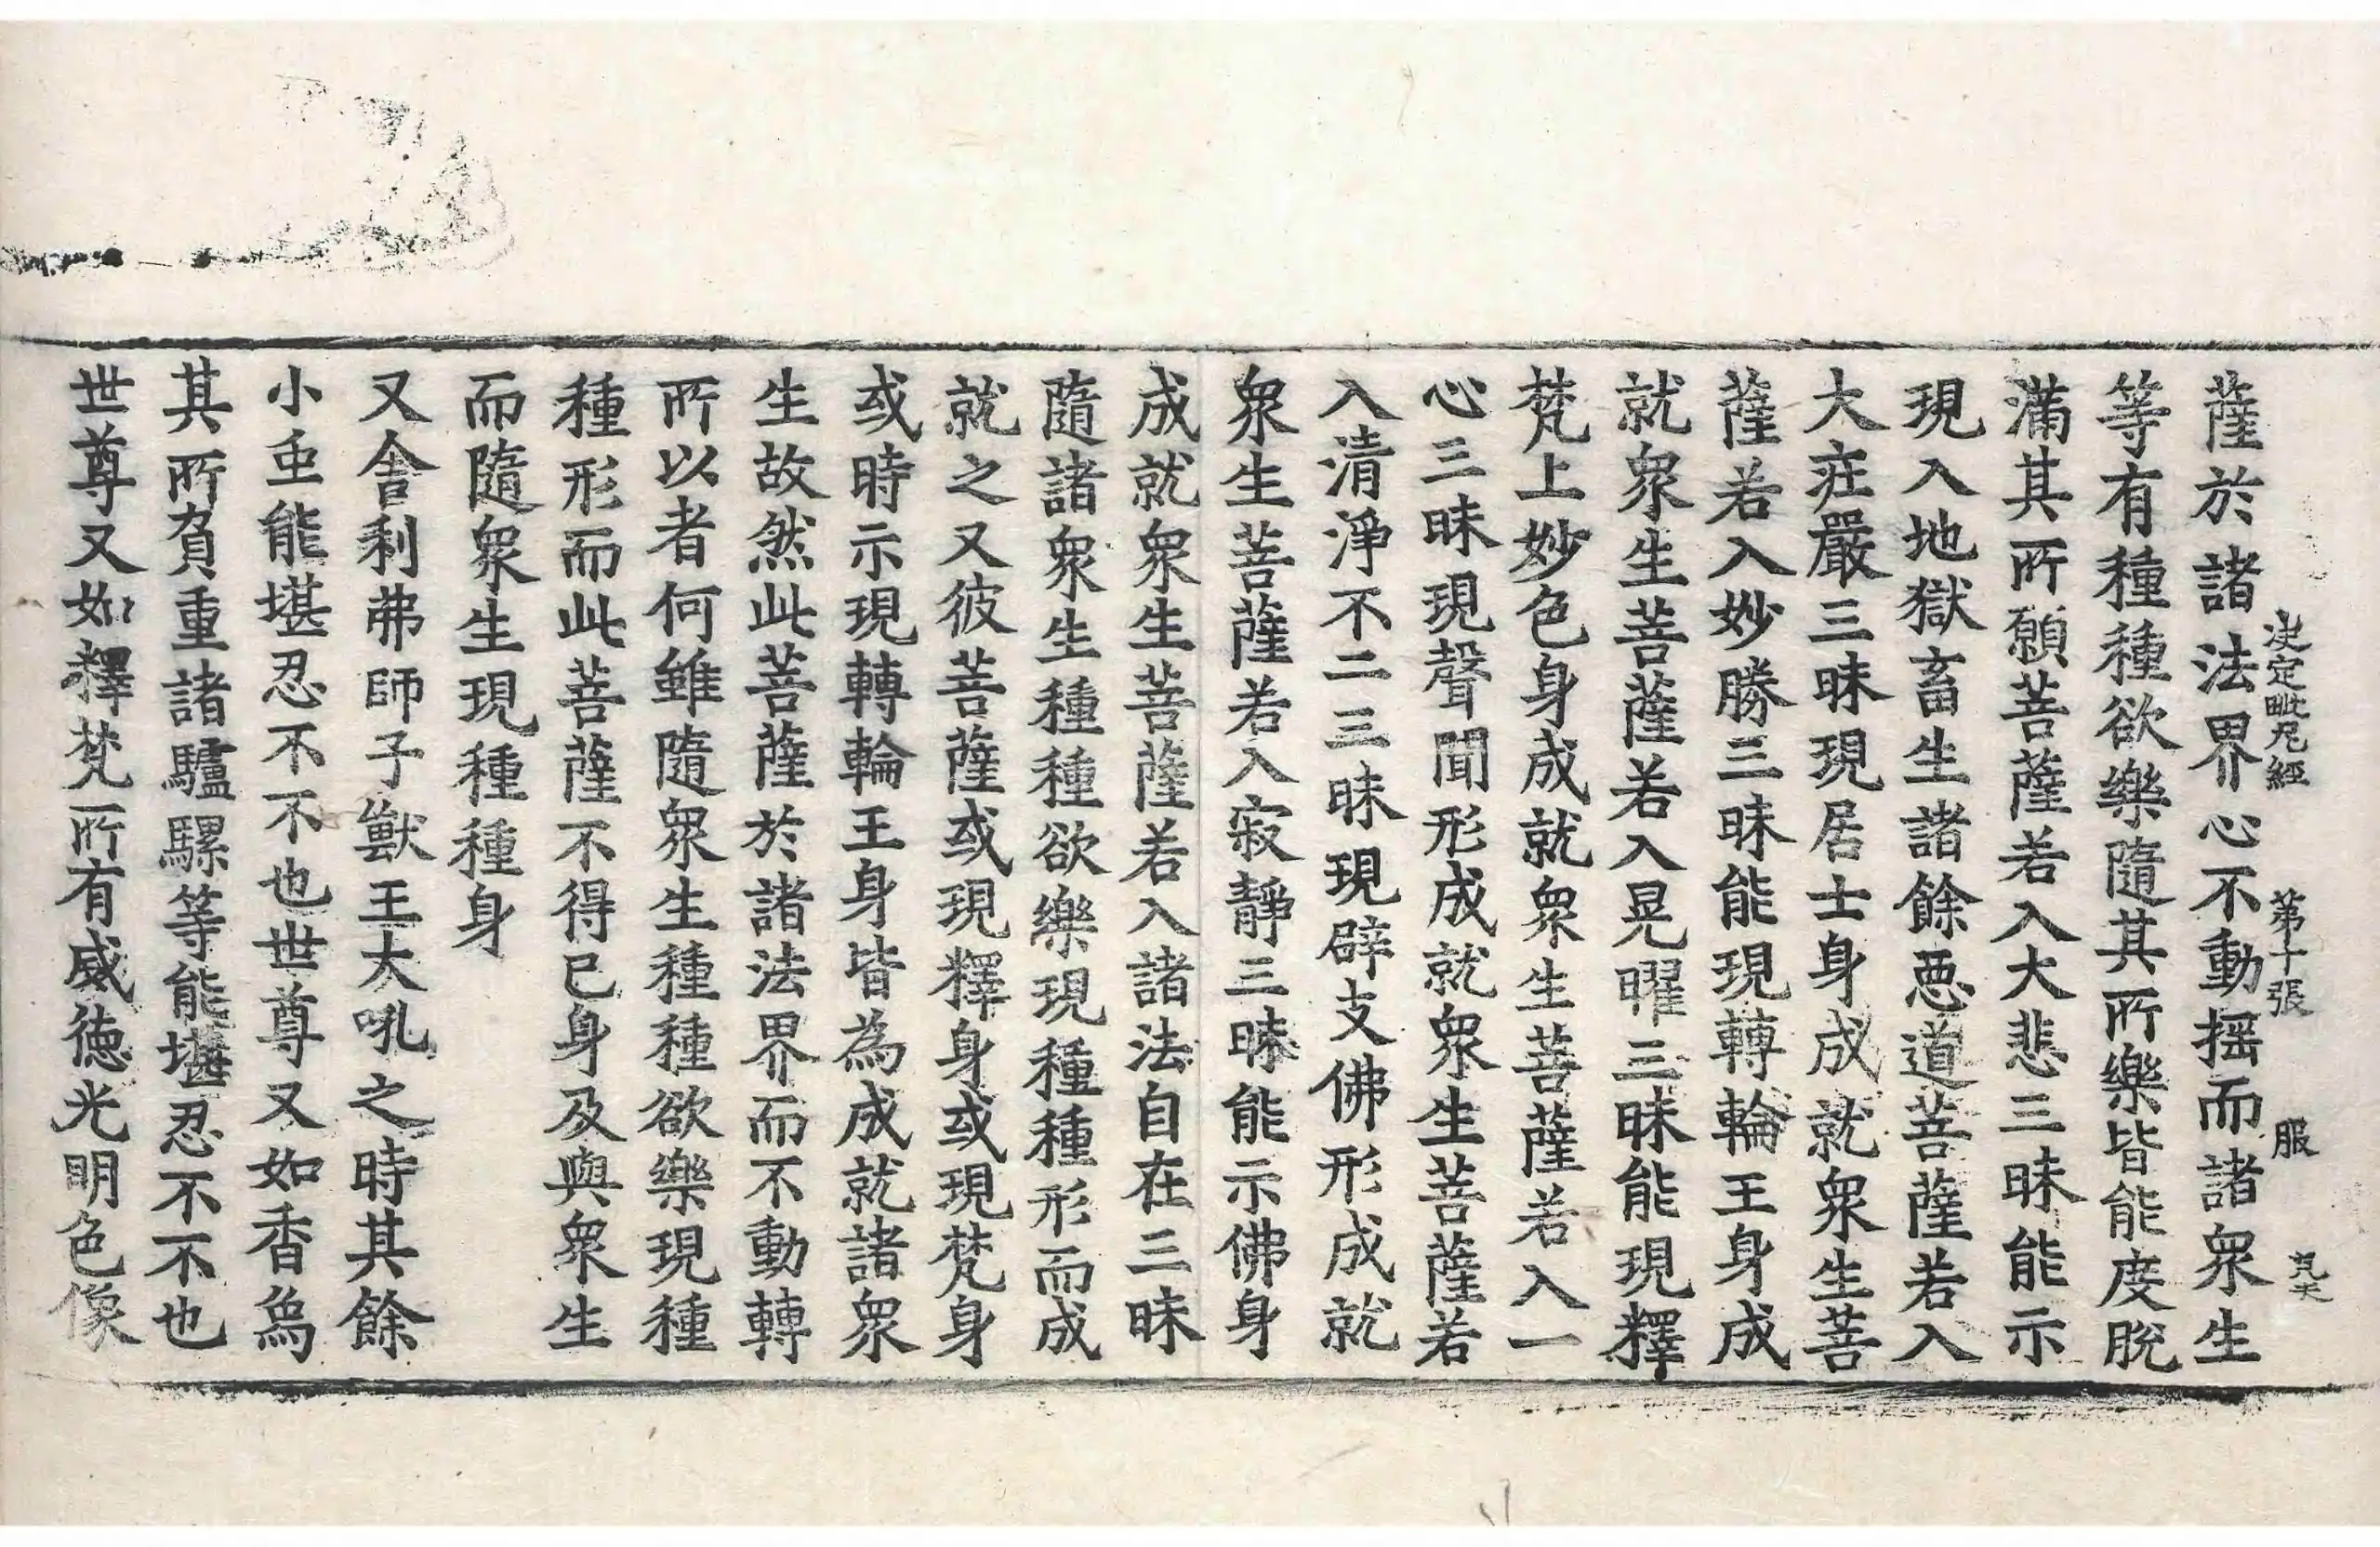 決定毗尼經 第十張 服
薩於諸法界心不動揺而諸衆生
等有種種欲樂隨其所樂皆能度脫
滿其所願菩薩若入大悲三昧能示
現入地獄畜生諸餘惡道菩薩若入
大莊嚴三昧現居士身成就衆生菩
薩若入妙勝三昧能現轉輪王身成
就衆生菩薩若入晃曜三昧能現釋
梵上妙色身成就衆生菩薩若入一
心三昧現聲聞形成就衆生菩薩若
入清淨不二三昧現辟支佛形成就
衆生菩薩若入寂靜三昧能示佛身
成就衆生菩薩若入諸法自在三昧
隨諸衆生種種欲樂現種種形而成
就之又彼菩薩或現釋身或現梵身
或時示現轉輪王身皆為成就諸衆
生故然此菩薩於諸法界而不動轉
所以者何雖隨衆生種種欲樂現種
種形而此菩薩不得已身及與衆生
而隨衆生現種種身
又舍利弗師子獸王大吼之時其餘
小䖝能堪忍不不也世尊又如香烏
其所負重諸驢騾等能堪忍不不也
世尊又如釋梵所有威德光明色像